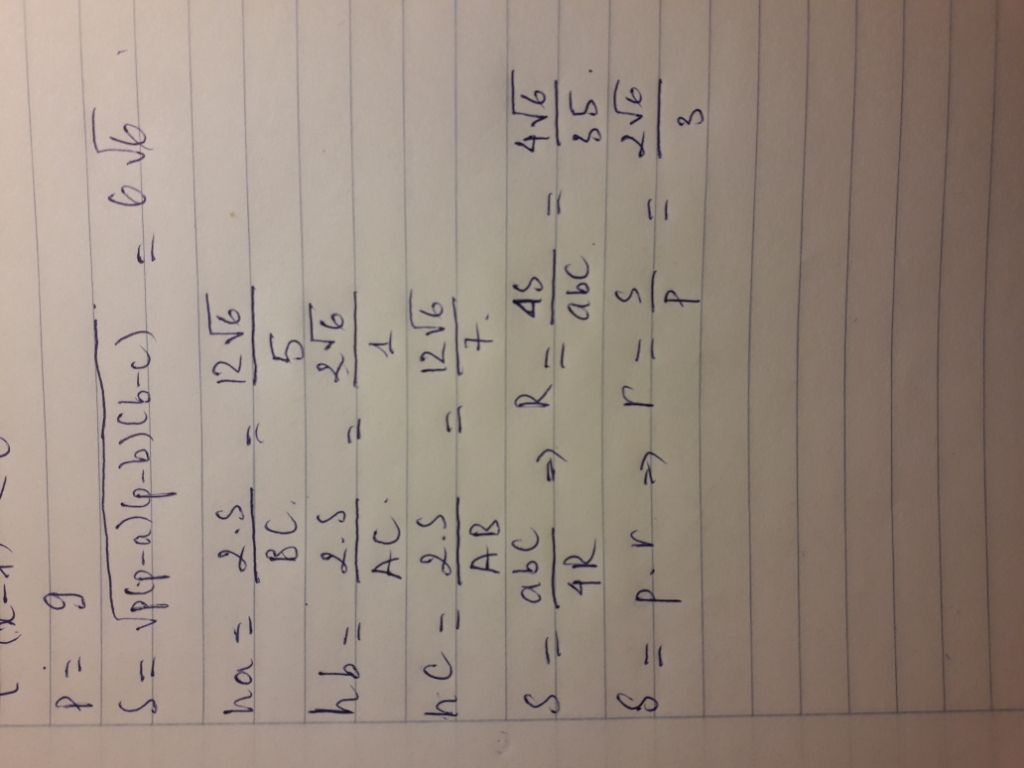 P = 9
S = √p(p-a)(p-b)(b-c) = 6√6
ha = 2.S/BC = 12√6/5
hb = 2.S/AC = 2√6/1
hc = 2.S/AB = 12√6/7
S = abc/4R => R = 4S/abc = 4√6/35
S = p.r => r = S/P = 2√6/3